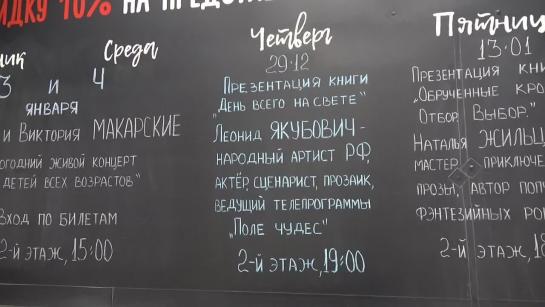 СКИДКУ 10% НА
Среда
3 и 4
ЯНВАРЯ
и Виктория МАКАРСКИЕ
живой концерт
детей всех возрастов"
Вход по билетам
2-й этаж, 15:00
Четверг
29.12
Презентация книги
„День всего на свете"
Леонид ЯКУБОВИЧ -
народный артист РФ,
актёр, сценарист, прозаик,
ведущий телепрограммы
„Поле чудес"
2-й этаж, 19:00
13.01
Презентация
„Обручённые
Отбор. Выбор."
Наталья
мастер
прозы, автор
фэнтезийных
2-й этаж,